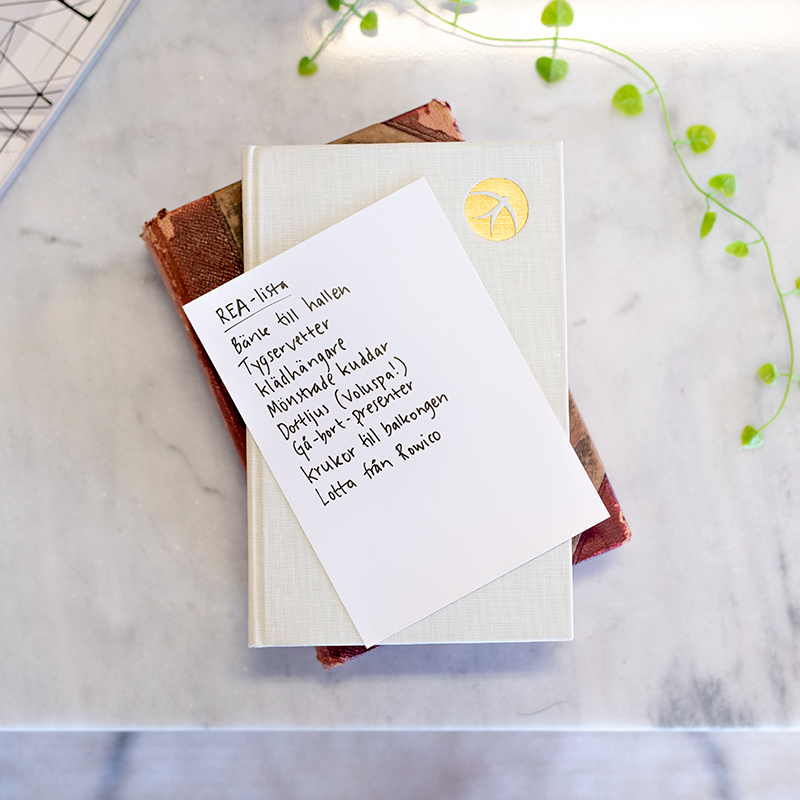 REA-lista
Bänk till hallen
Tygservetter
klädhängare
Mönstrade kuddar
Doftljus (Voluspa!)
Gå-bort-presenter
krukor till balkongen
Lotta från Rowico